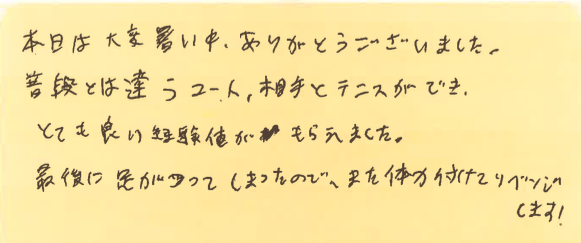 本日は大変暑い中、ありがとうございました。
普段とは違うコート、相手とテニスができ、
とても良い経験値がもらえました。
最後に足がつってしまったので、また体力付けてリベンジ
します!